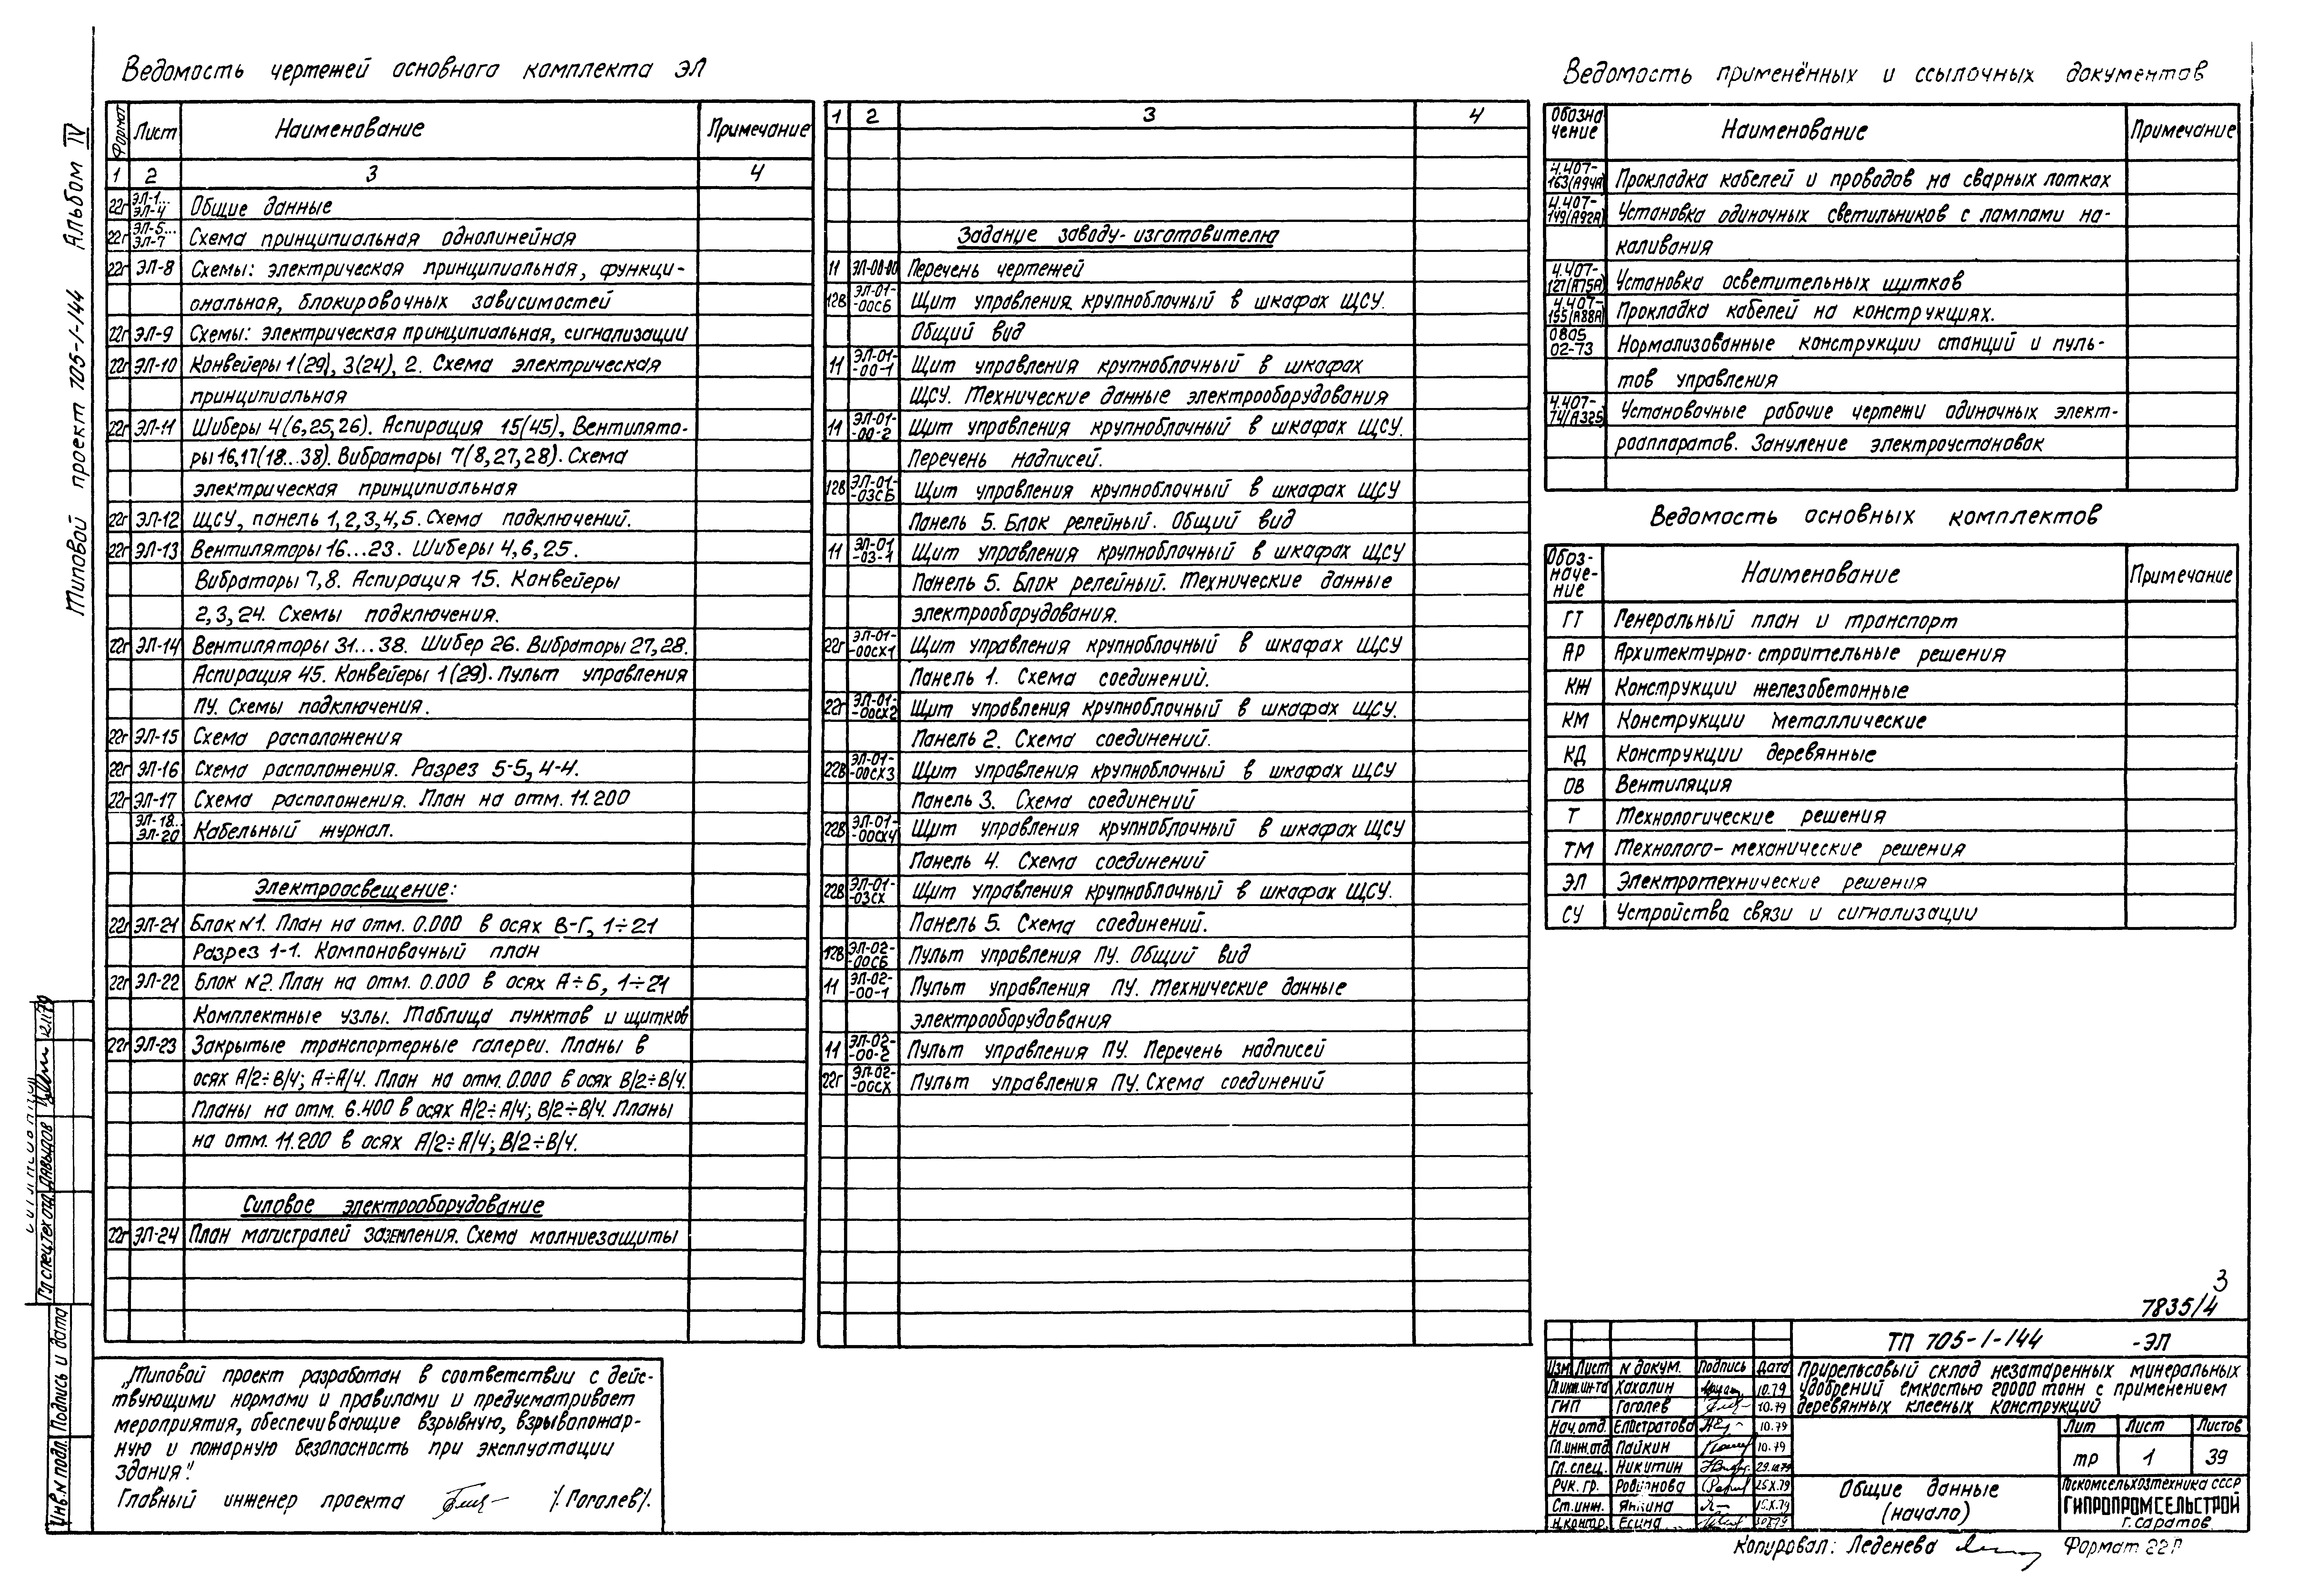 Типовой проект 705-1-144 Альбом IV
Ведомость чертежей основного комплекта ЭЛ
Формат Лист Наименование Примечание
1 2 3 4
22г ЭЛ-1... ЭЛ-4 Общие данные
22г ЭЛ-5... ЭЛ-7 Схема принципиальная однолинейная
22г ЭЛ-8 Схемы: электрическая принципиальная, функци-
ональная, блокировочных зависимостей
22г ЭЛ-9 Схемы: электрическая принципиальная, сигнализации
22г ЭЛ-10 Конвейеры 1(29), 3(24), 2. Схема электрическая
принципиальная
22г ЭЛ-11 Шиберы 4(6,25,26). Аспирация 15(45), Вентилято-
ры 16,17(18...38). Вибраторы 7(8,27,28). Схема
электрическая принципиальная
22г ЭЛ-12 ЩСУ, панель 1,2,3,4,5. Схема подключений.
22г ЭЛ-13 Вентиляторы 16...23. Шиберы 4,6,25.
Вибраторы 7,8. Аспирация 15. Конвейеры
2,3,24. Схемы подключения.
22г ЭЛ-14 Вентиляторы 31...38. Шибер 26. Вибраторы 27,28.
Аспирация 45. Конвейеры 1(29). Пульт управления
ПУ. Схемы подключения.
22г ЭЛ-15 Схема расположения
22г ЭЛ-16 Схема расположения. Разрез 5-5, 4-4.
22г ЭЛ-17 Схема расположения. План на отм. 11.200
ЭЛ-18.. ЭЛ-20 Кабельный журнал.
Электроосвещение:
22г ЭЛ-21 Блок N1. План на отм. 0.000 в осях В-Г, 1÷21
Разрез 1-1. Компоновочный план
22г ЭЛ-22 Блок N2. План на отм. 0.000 в осях А÷Б, 1÷21
Комплектные узлы. Таблица пунктов и щитков
22г ЭЛ-23 Закрытые транспортерные галереи. Планы в
осях А/2÷В/4; А÷А/4. План на отм. 0.000 в осях В/2÷В/4.
Планы на отм. 6.400 в осях А/2÷А/4; В/2÷В/4. Планы
на отм. 11.200 в осях А/2÷А/4; В/2÷В/4.
Силовое электрооборудование
22г ЭЛ-24 План магистралей заземления. Схема молниезащиты
1 2 3 4
Задание заводу-изготовителю
11 ЭЛ-00-00 Перечень чертежей
12В ЭЛ-01- -00СБ Щит управления крупноблочный в шкафах ЩСУ.
Общий вид
11 ЭЛ-01- -00-1 Щит управления крупноблочный в шкафах
ЩСУ. Технические данные электрооборудования
11 ЭЛ-01- -00-2 Щит управления крупноблочный в шкафах ЩСУ.
Перечень надписей.
12В ЭЛ-01- -03СБ Щит управления крупноблочный в шкафах ЩСУ
Панель 5. Блок релейный. Общий вид
11 ЭЛ-01 -03-1 Щит управления крупноблочный в шкафах ЩСУ
Панель 5. Блок релейный. Технические данные
электрооборудования.
22г ЭЛ-01- -00СХ1 Щит управления крупноблочный в шкафах ЩСУ
Панель 1. Схема соединений.
22г ЭЛ-01- -00СХ2 Щит управления крупноблочный в шкафах ЩСУ.
Панель 2. Схема соединений.
22В ЭЛ-01- -00СХ3 Щит управления крупноблочный в шкафах ЩСУ
Панель 3. Схема соединений
22В ЭЛ-01- -00СХ4 Щит управления крупноблочный в шкафах ЩСУ
Панель 4. Схема соединений
22В ЭЛ-01- -03СХ Щит управления крупноблочный в шкафах ЩСУ.
Панель 5. Схема соединений.
12В ЭЛ-02- -00СБ Пульт управления ПУ. Общий вид
11 ЭЛ-02- -00-1 Пульт управления ПУ. Технические данные
электрооборудования
11 ЭЛ-02- -00-2 Пульт управления ПУ. Перечень надписей
22г ЭЛ-02- -00СХ Пульт управления ПУ. Схема соединений
Ведомость применённых и ссылочных документов
Обозна чение Наименование Примечание
4.407- 163(А94А) Прокладка кабелей и проводов на сварных лотках
4.407- 149(А92А) Установка одиночных светильников с лампами на-
каливания
4.407- 127(А75А) Установка осветительных щитков
4.407- 155(А88А) Прокладка кабелей на конструкциях.
0805 02-73 Нормализованные конструкции станций и пуль-
тов управления
4.407- 74(А325) Установочные рабочие чертежи одиночных элект-
роаппаратов. Зануление электроустановок
Ведомость основных комплектов
Обоз- наче- ние Наименование Примечание
ГТ Генеральный план и транспорт
АР Архитектурно-строительные решения
КЖ Конструкции железобетонные
КМ Конструкции металлические
КД Конструкции деревянные
ОВ Вентиляция
Т Технологические решения
ТМ Технолого-механические решения
ЭЛ Электротехнические решения
СУ Устройства связи и сигнализации
3
7835/4
"Типовой проект разработан в соответствии с дейс-
твующими нормами и правилами и предусматривает
мероприятия, обеспечивающие взрывную, взрывопожар-
ную и пожарную безопасность при эксплуатации
здания".
Главный инженер проекта /Гоголев/.
Гл.спец.тех.отд. Давыдов 12.11.79
Инв.N подл. Подпись и дата
ТП 705-1-144 -ЭЛ
Изм. Лист N докум. Подпись Дата
Гл.инж.ин-та Хахалин 10.79
ГИП Гоголев 10.79
Нач.отд. Елистратова 10.79
Гл.инж.отд Пайкин 10.79
Гл.спец. Никитин
Рук. гр. Родионова 25.X.79
Ст.инж. Янкина
Н.контр. Есина
Прирельсовый склад незатаренных минеральных
удобрений емкостью 20000 тонн с применением
деревянных клееных конструкций
Лит Лист Листов
тр 1 39
Общие данные
(начало)
Госкомсельхозтехника СССР
ГИПРОПРОМСЕЛЬСТРОЙ
г. саратов
Копировал: Леденева Формат 22Г